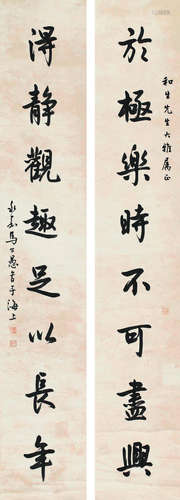 和生先生大雅属正
於極樂時不可盡興
得静觀趣足以長年
永嘉馬公愚書于海上